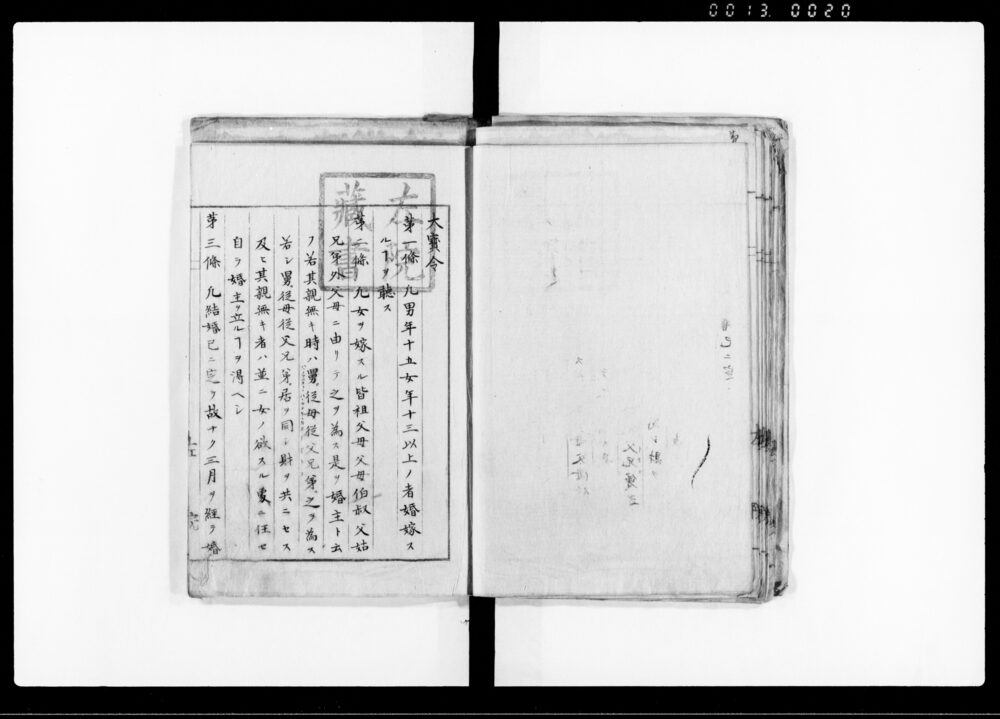 0013 0020
左院
藏書
大寶令
第一條 凢男年十五女年十三以上ノ者婚嫁ス
ルヿヲ聽ス
第二條 凢女ヲ嫁スル皆祖父母父母伯叔父姑
兄弟外父母ニ由リテ之ヲ為ス是ヲ婚主ト云
フ若其親無キ時ハ舅從母從父兄弟之ヲ為ス
若シ舅從母從父兄弟居ヲ同シ財ヲ共ニセス
及ヒ其親無キ者ハ並ニ女ノ欲スル處ニ任セ
自ラ婚主ヲ立ルヿヲ得ヘシ
第三條 凢結婚已ニ定ヲ故ナク三月ヲ經テ婚